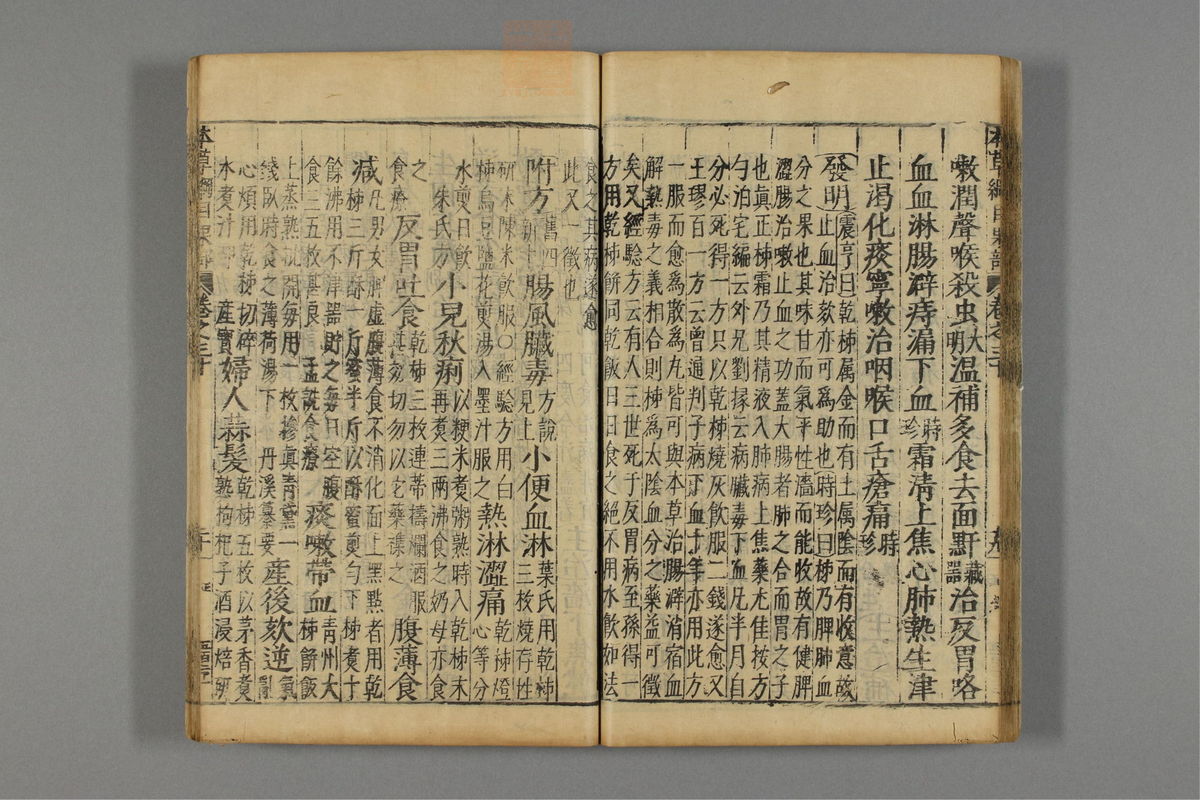 嗽潤聲喉殺虫大明溫補多食去面䵟藏器治反胃咯
血血淋腸澼痔漏下血時珍霜淸上焦心肺熱生津
止渴化痰寧嗽治咽喉口舌瘡痛時珍
發明震亨曰乾柹属金而有土属陰而有收意故
止血治欬亦可爲助也時珍曰柹乃脾肺血
分之果也其味甘而氣平性濇而能收故有健脾
澀腸治嗽止血之功蓋大腸者肺之合而胃之子
也眞正柹霜乃其精液入肺病上焦藥尤佳按方
勺泊宅編云外兄劉掾云病臓毒下血凡半月自
分必死得一方只以乾柹燒灰飮服二錢遂愈又
王璆百一方云曾通判子病下血十年亦用此方
一服而愈爲散爲丸皆可與本草治腸澼消宿血
解熱毒之義相合則柹爲太陰血分之藥益可徵
矣又經驗方云有人三世死于反胃病至孫得一
方用乾柹餅同乾飯日日食之絕不用水飮如法
食之其病遂愈
此又一徵也
附方舊四新 腸風臓毒方說見上小便血淋葉氏用乾柹三枚燒存性
研末陳米飮服〇經驗方用白 熱淋澀痛乾柹燈心等分
水煎日飮 小兒秋痢以粳米煮粥熟時入乾柹末再煮三兩沸食之奶母亦食
之食療反胃吐食乾柹三枚連蒂擣爛酒服甚效切勿以它藥雜之腹薄食
減凡男女脾虛腹薄食不消化面上黑點者用乾
柹三斤酥一斤蜜半斤以酥蜜煎勻下柹煮十
餘沸用不津器貯之每日空腹
食三五枚甚良孟詵食療痰嗽帶血青州大柹餅飯
上蒸熟批開每用一枚摻眞青黛一
錢臥時食之薄荷湯下丹溪纂要產後欬逆氣亂
心煩用乾柹切碎
水煮汁 產寶婦人蒜髮乾柹五枚以茅香煮熟枸杞子酒浸焙研